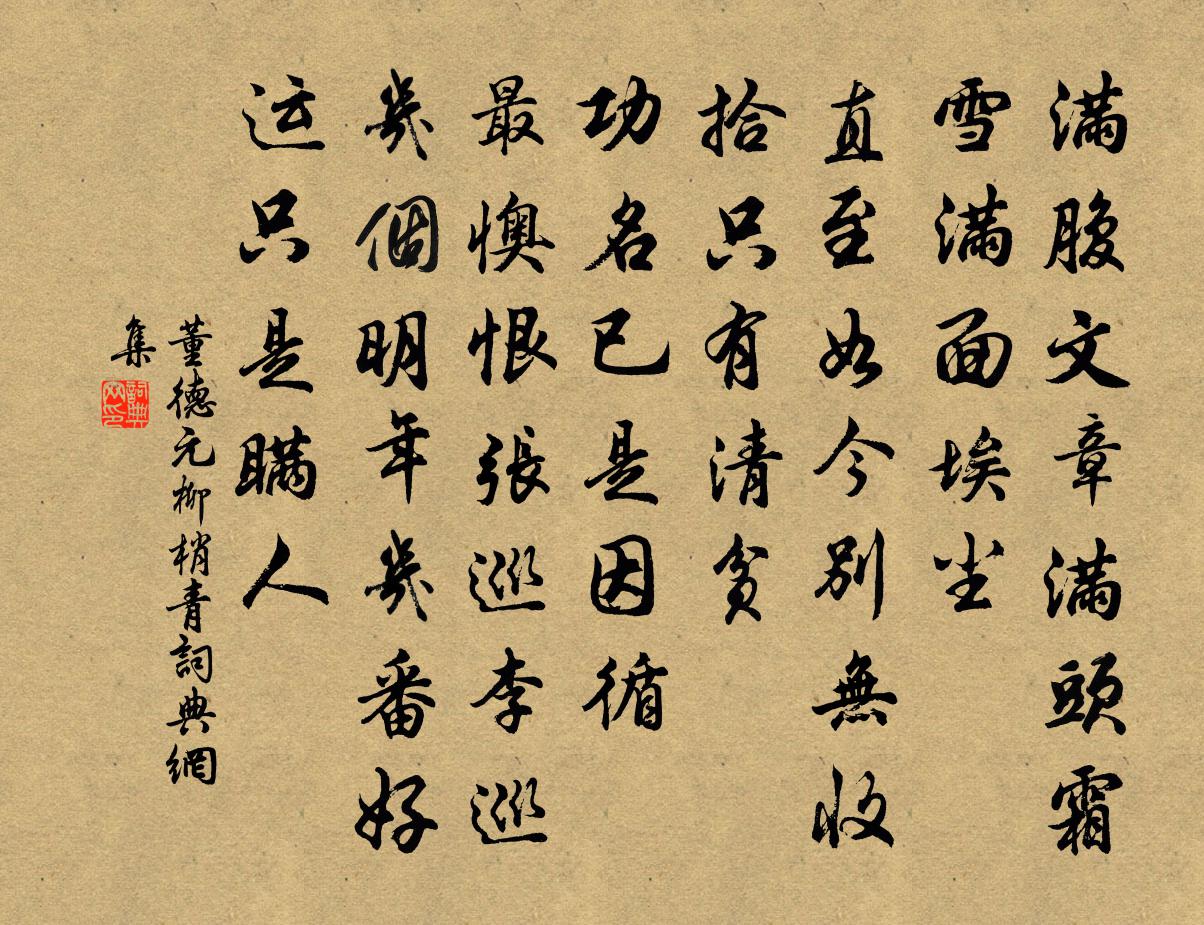 满腹文章满頭霜
雪满面埃尘
直至如今別無收
拾只有清貧
功名已是因循
最懊恨張巡李巡
幾個明年幾番好
运只是瞞人
董德元柳梢青詞典網
集
詞典
网印